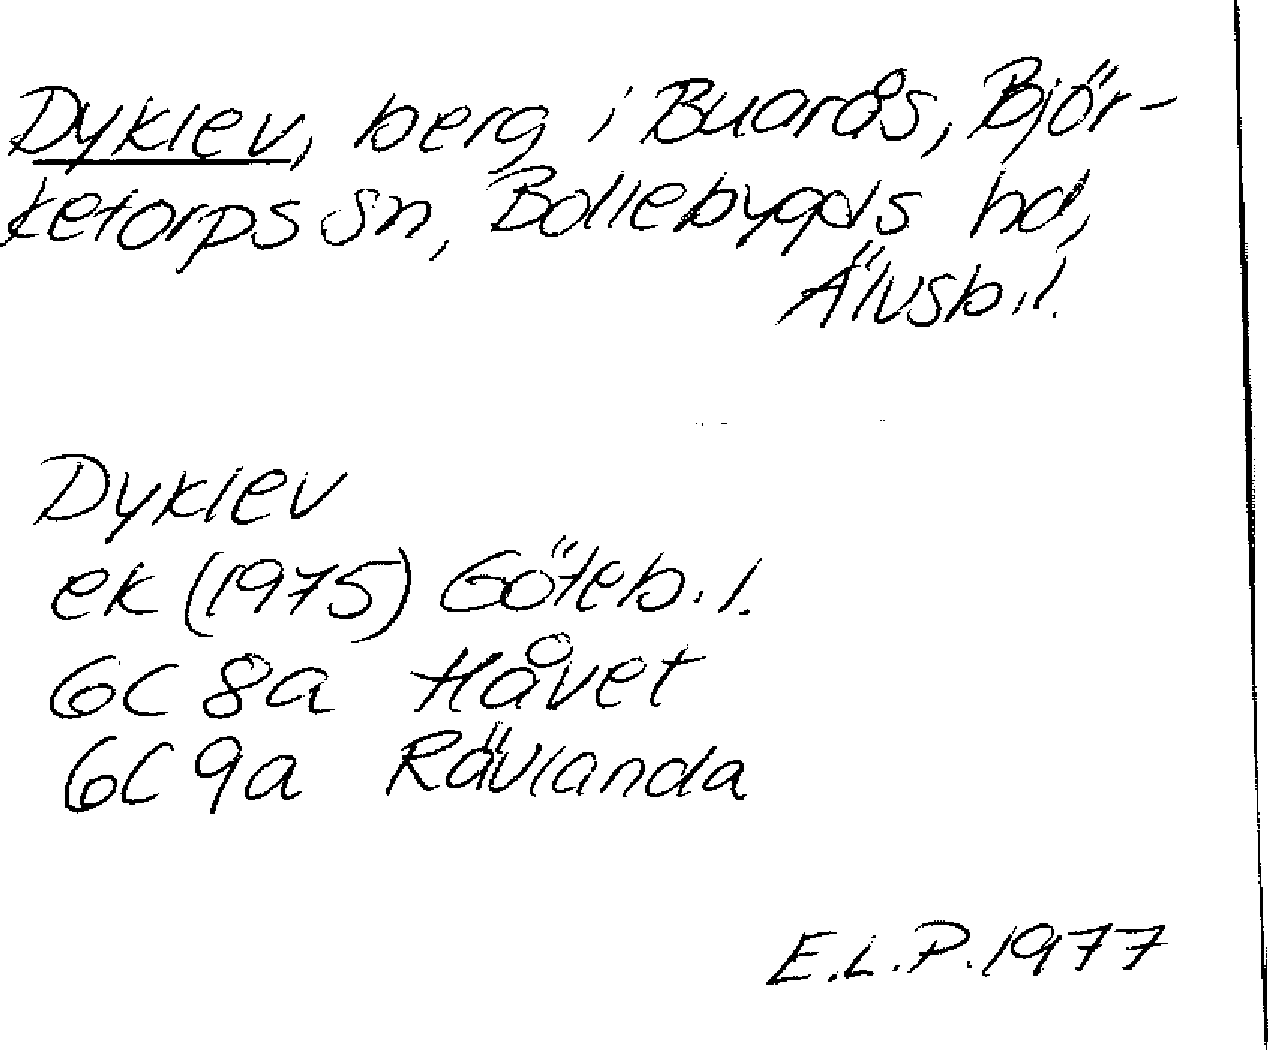 Dyklev, berg i Buarås, Björ-
ketorps sn, Bollebygds hd,
Älvsb.l.
Dyklev
ek (1975) Göteb.l.
6C 8a Håvet
6C 9a Rävlanda
E.L.P. 1977